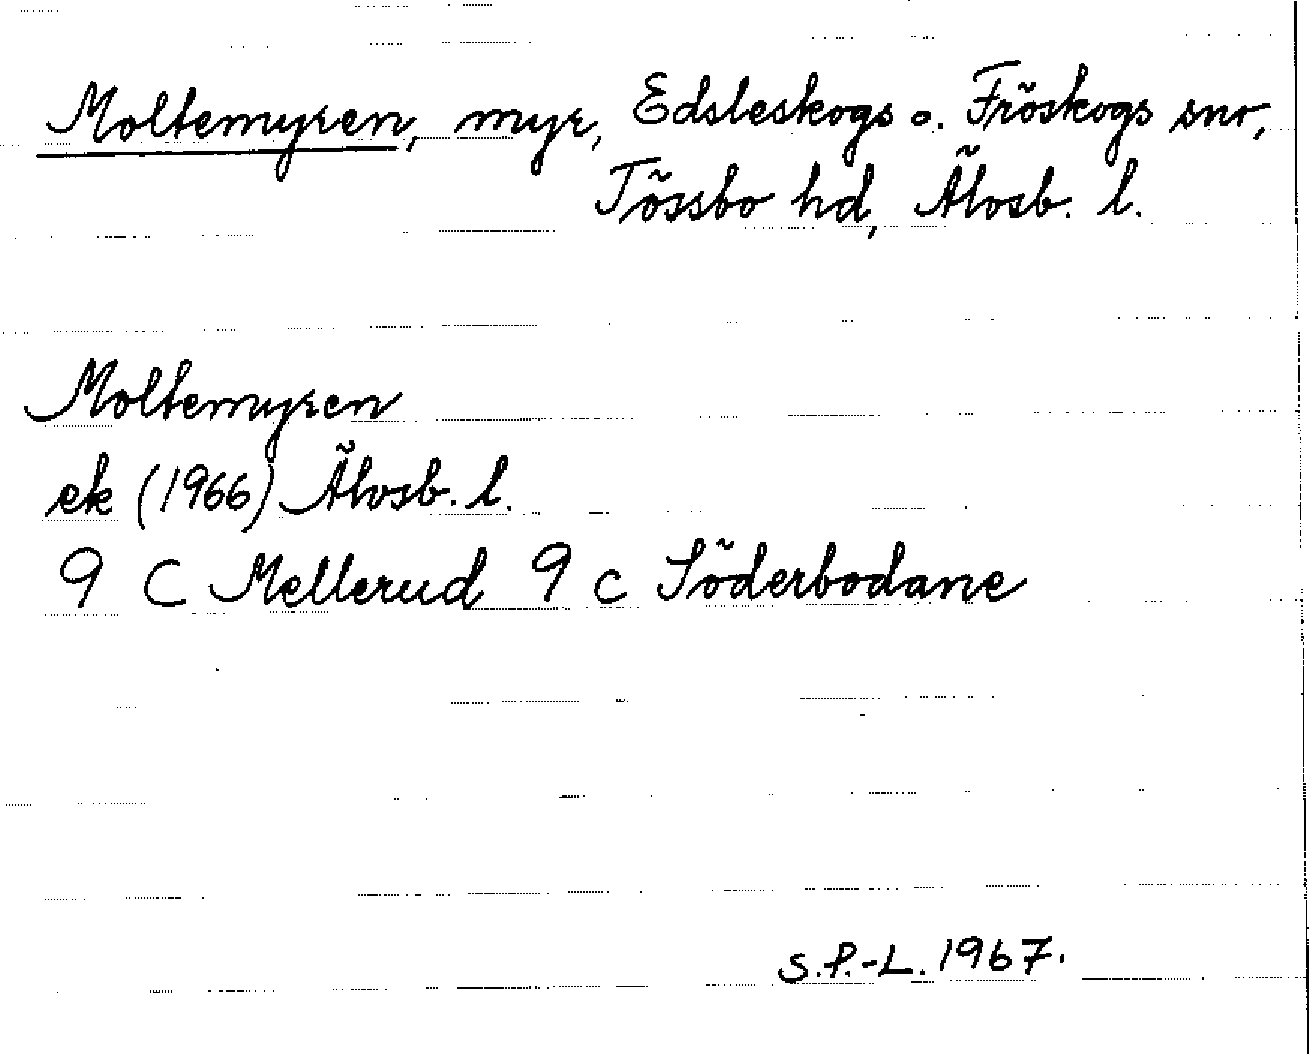 Moltemyren, myr, Edsleskogs o. Fröskogs snr,
Tössbo hd, Älvsb. l.
Moltemyren
ek (1966) Älvsb. l.
9 C Mellerud 9 c Söderbodane
S.P.-L. 1967.